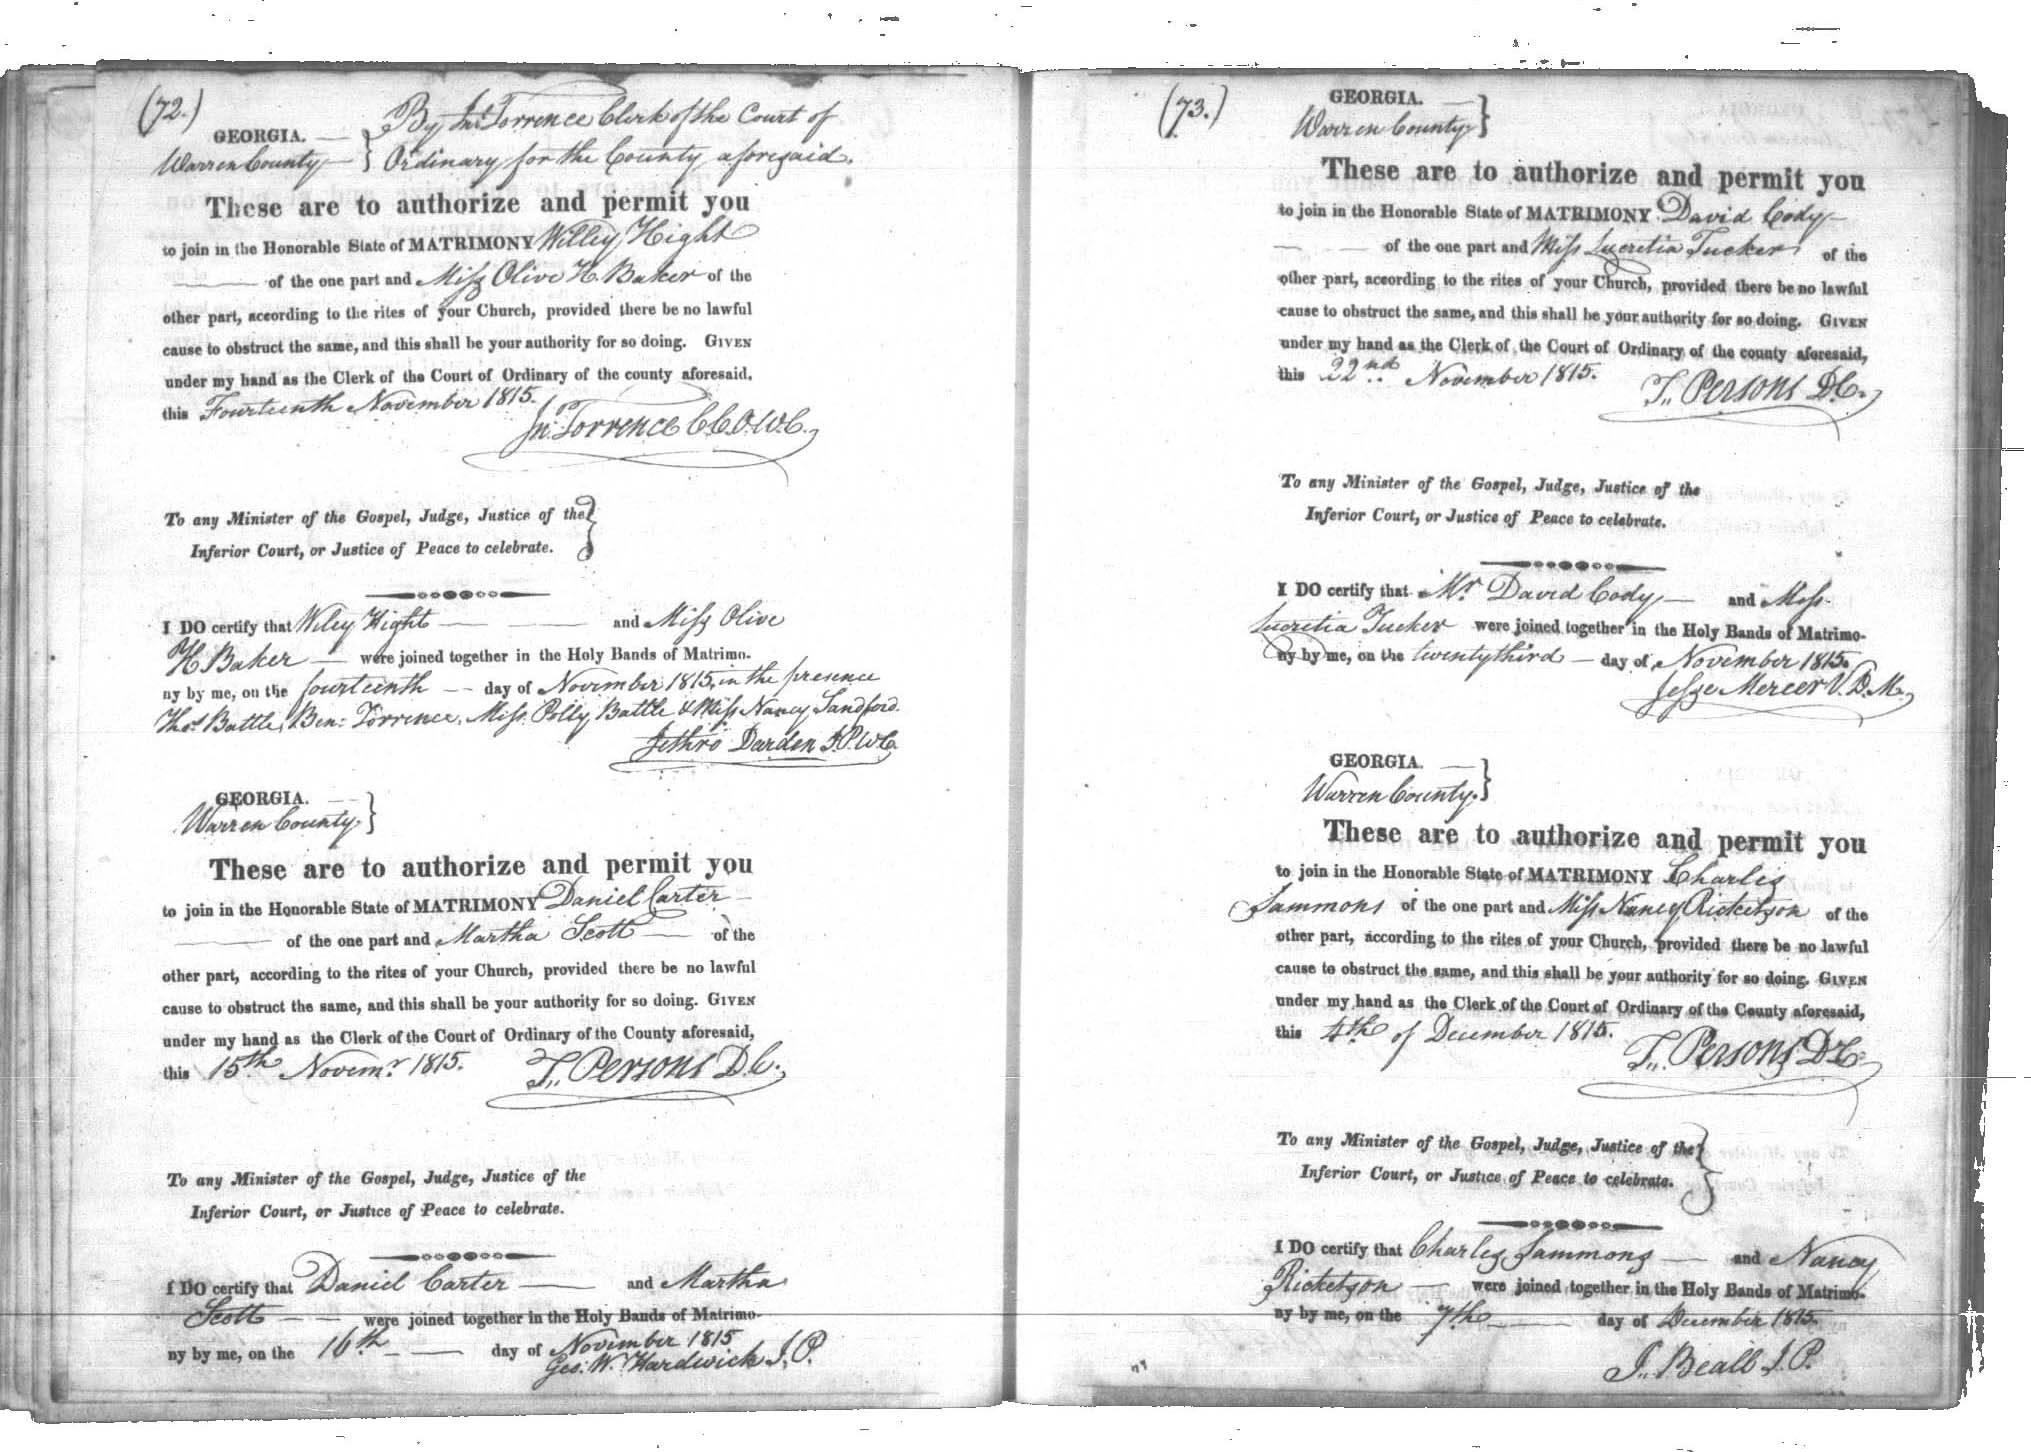 (72.)
GEORGIA. — } By Jn: Torrence Clerk of the Court of
Warren County — } Ordinary for the County aforesaid.
These are to authorize and permit you
to join in the Honorable State of MATRIMONY Willey Hight
of the one part and Miss Olive H. Baker of the
other part, according to the rites of your Church, provided there be no lawful
cause to obstruct the same, and this shall be your authority for so doing. GIVEN
under my hand as the Clerk of the Court of Ordinary of the county aforesaid,
this Fourteenth November 1815.
Jn: Torrence C.C.O.W.C.
To any Minister of the Gospel, Judge, Justice of the }
Inferior Court, or Justice of Peace to celebrate.
I DO certify that Wiley Hight — — and Miss Olive
H Baker — were joined together in the Holy Bands of Matrimo-
ny by me, on the fourteenth — day of November 1815, in the presence
Thos. Battle, Ben: Torrence, Miss Polly Battle & Miss Nancy Sandford.
Jethro Darden J.P.W.C.
GEORGIA. —
Warren County. }
These are to authorize and permit you
to join in the Honorable State of MATRIMONY Daniel Carter —
— of the one part and Martha Scott — of the
other part, according to the rites of your Church, provided there be no lawful
cause to obstruct the same, and this shall be your authority for so doing. GIVEN
under my hand as the Clerk of the Court of Ordinary of the County aforesaid,
this 15th Novemr. 1815.
T,, Persons D.C.
To any Minister of the Gospel, Judge, Justice of the
Inferior Court, or Justice of Peace to celebrate.
I DO certify that Daniel Carter — and Martha
Scott — — were joined together in the Holy Bands of Matrimo-
ny by me, on the 16th — day of November 1815
Geo: W. Hardwick J.P.
(73.)
GEORGIA. —
Warren County }
These are to authorize and permit you
to join in the Honorable State of MATRIMONY David Cody —
— — of the one part and Miss Lucretia Tucker of the
other part, according to the rites of your Church, provided there be no lawful
cause to obstruct the same, and this shall be your authority for so doing. GIVEN
under my hand as the Clerk of the Court of Ordinary of the county aforesaid,
this 22nd November 1815.
T,, Persons D.C.
To any Minister of the Gospel, Judge, Justice of the
Inferior Court, or Justice of Peace to celebrate.
I DO certify that Mr David Cody — and Miss
Lucretia Tucker were joined together in the Holy Bands of Matrimo-
ny by me, on the twentythird — day of November 1815.
Jesse Mercer V.D.M.
GEORGIA. —
Warren County. }
These are to authorize and permit you
to join in the Honorable State of MATRIMONY Charles
Sammons of the one part and Miss Nancy Ricketson of the
other part, according to the rites of your Church, provided there be no lawful
cause to obstruct the same, and this shall be your authority for so doing. GIVEN
under my hand as the Clerk of the Court of Ordinary of the County aforesaid,
this 4th of December 1815.
T,, Persons D.C.
To any Minister of the Gospel, Judge, Justice of the }
Inferior Court, or Justice of Peace to celebrate.
I DO certify that Charles Sammons — and Nancy
Ricketson — were joined together in the Holy Bands of Matrimo-
ny by me, on the 7th — day of December 1815.
J,, Beall J.P.